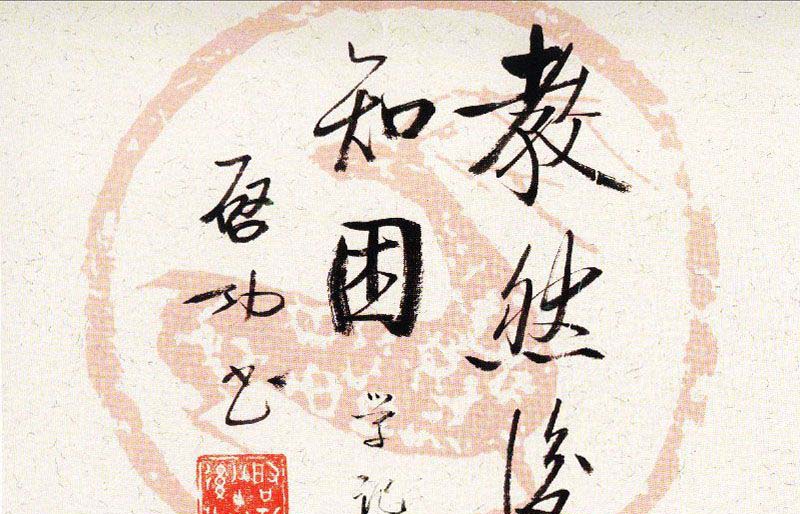 教然後
知困学记
启功书